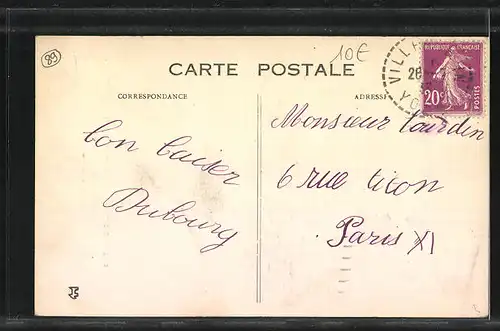 89
10€
CARTE POSTALE
CORRESPONDANCE
ADRESSE
RÉPUBLIQUE FRANÇAISE
20c
POSTES
VILLE
26
YO
bon baiser
Dubourg
Monsieur Tourdin
6 rue
Paris XI